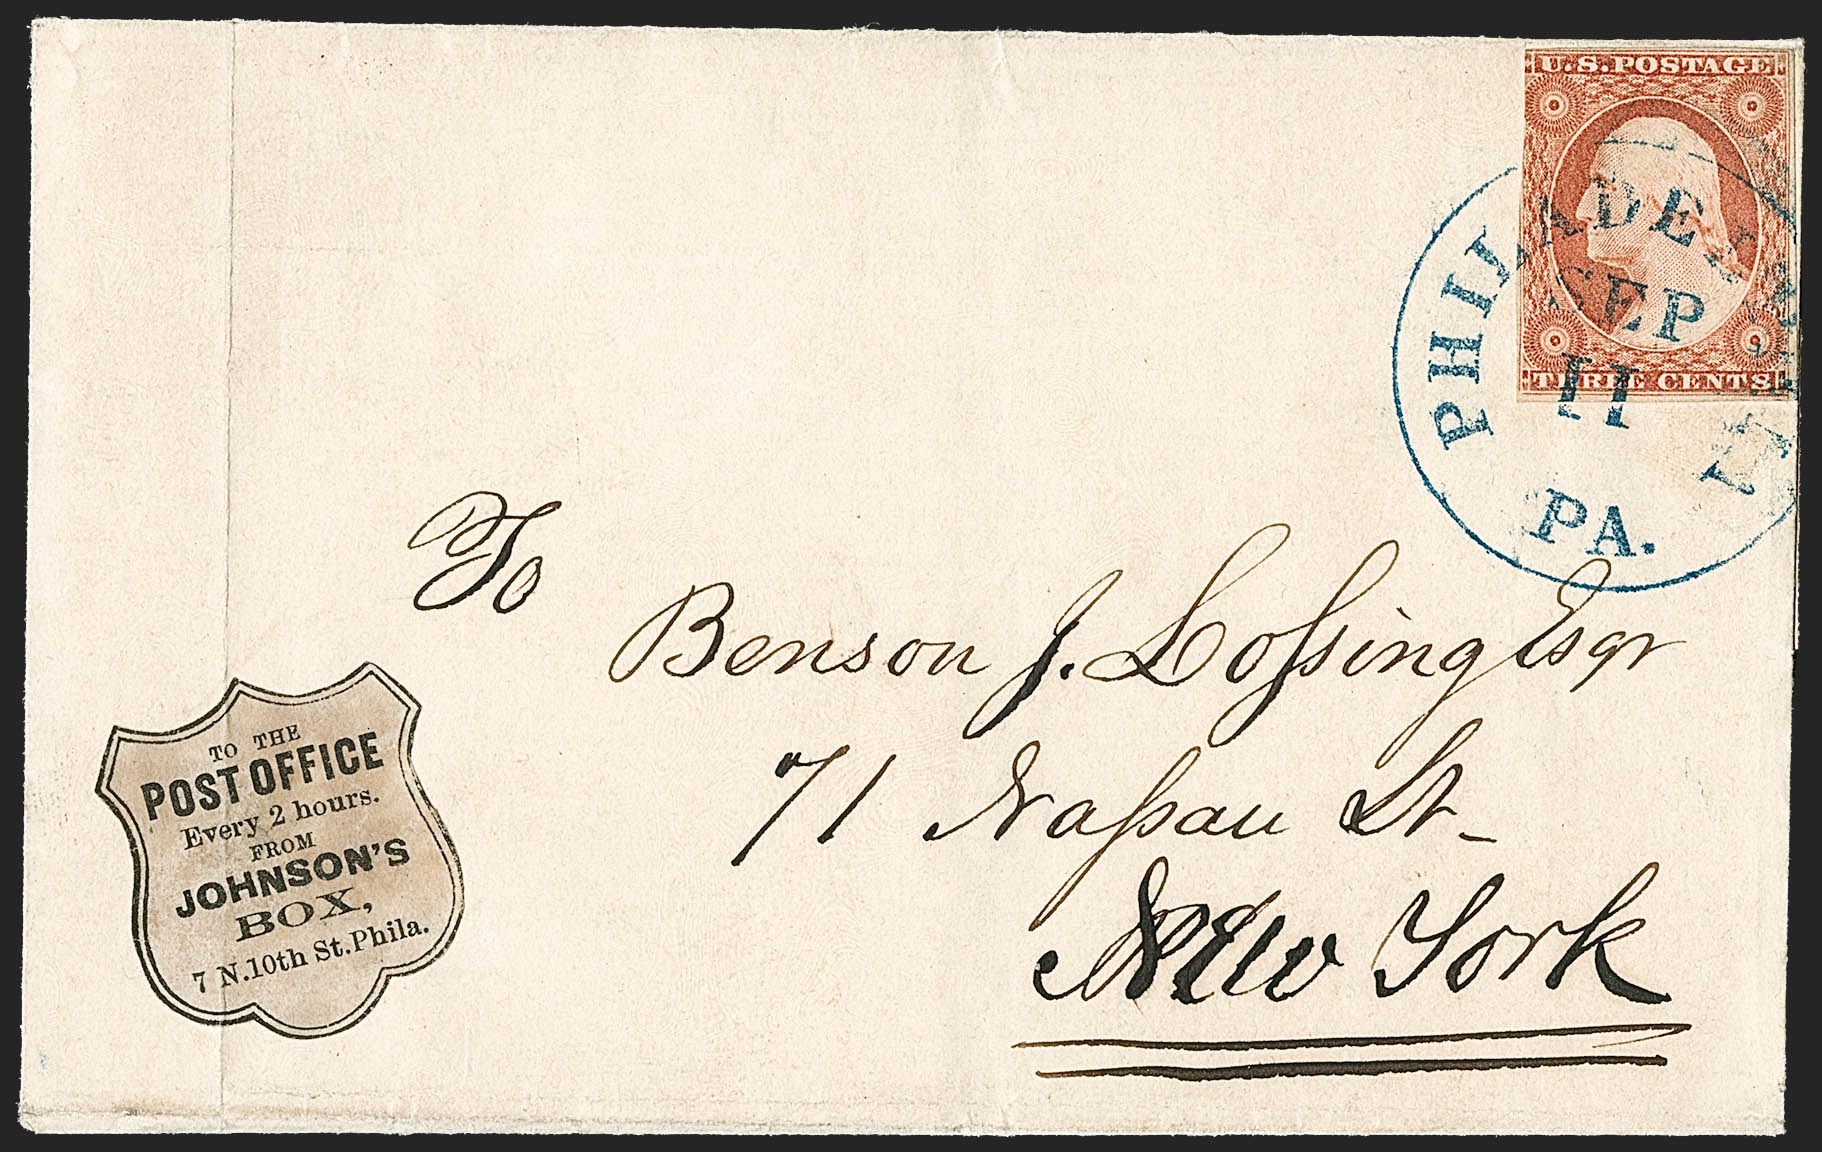 U.S. POSTAGE
THREE CENTS
PHILADELPHIA
SEP
11
PA.
To
Benson J. Lossing Esqr
71 Nassau St.
New York
TO THE
POST OFFICE
Every 2 hours.
FROM
JOHNSON'S
BOX,
7 N. 10th St. Phila.